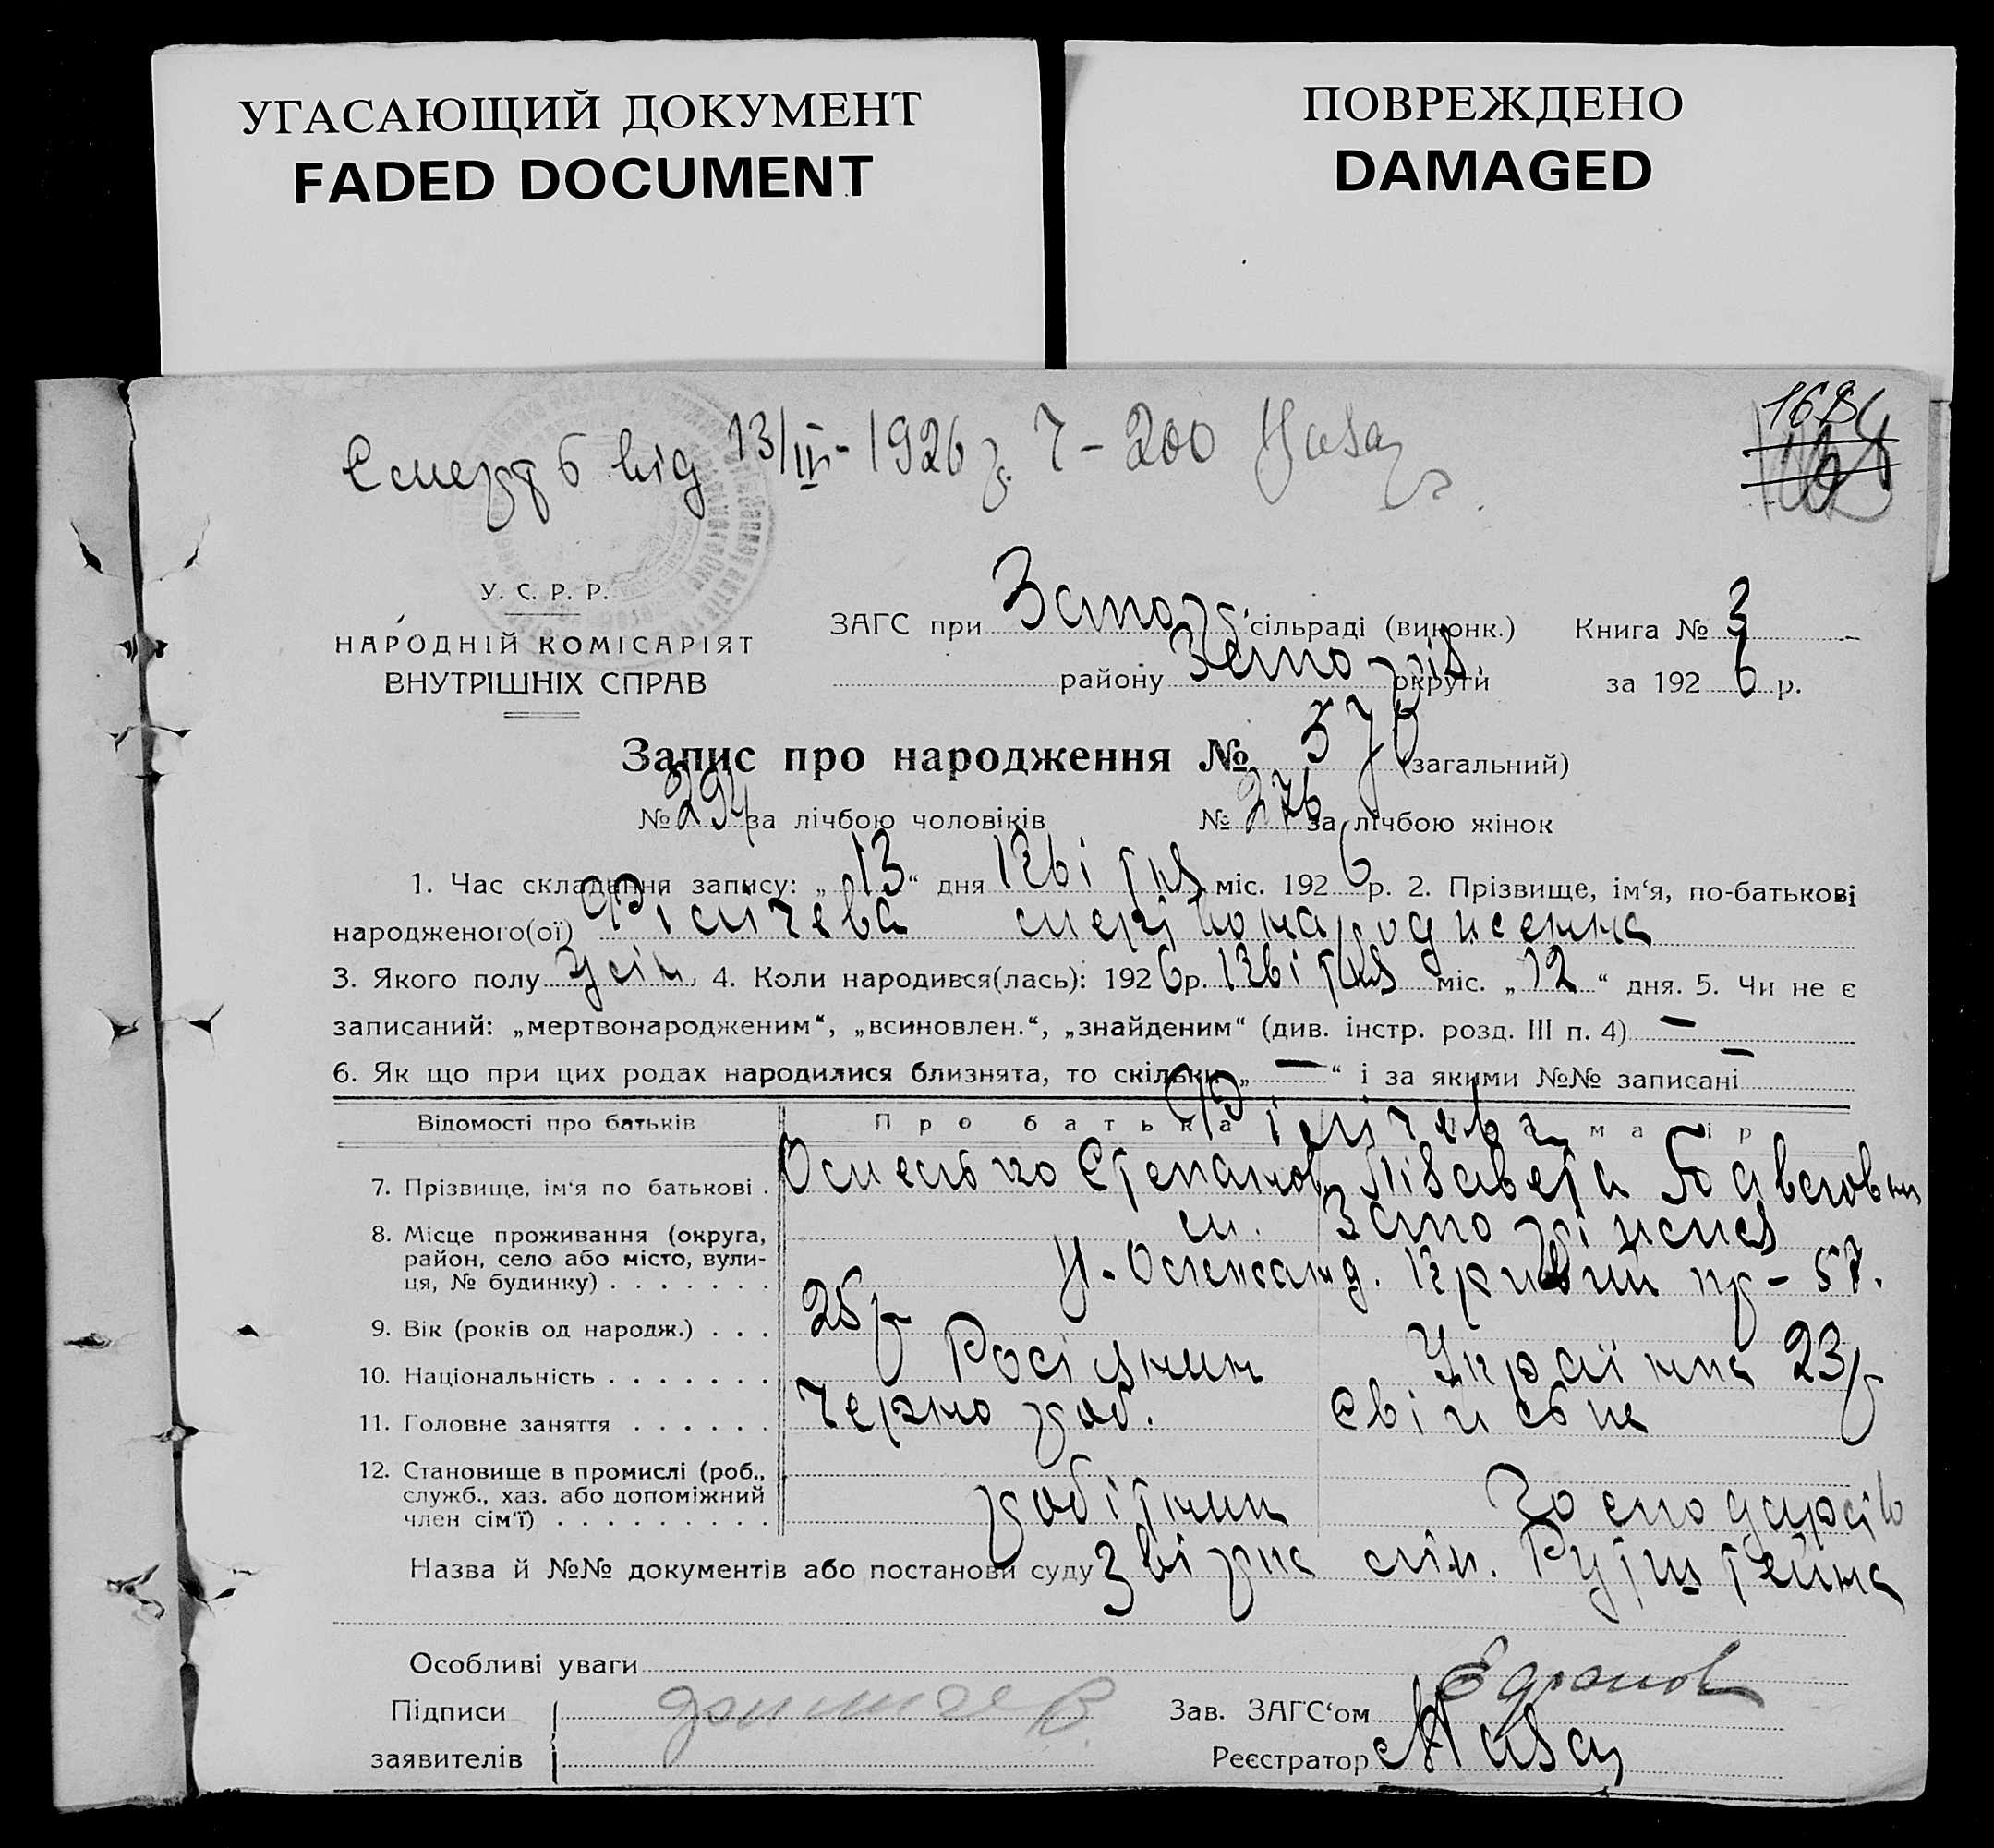 УГАСАЮЩИЙ ДОКУМЕНТ
FADED DOCUMENT
ПОВРЕЖДЕНО
DAMAGED
Смерть від 13/IV-1926 р. Ч-200
168
У. С. Р. Р.
НАРОДНІЙ КОМІСАРІЯТ
ВНУТРІШНІХ СПРАВ
ЗАГС при Запоріз. сільраді (виконк.) Книга № 3
району Запоріз. округи за 1926 р.
Запис про народження № 570 (загальний)
№ 294 за лічбою чоловіків № 276 за лічбою жінок
1. Час складання запису: „13“ дня Квітня міс. 1926 р. 2. Прізвище, ім‘я, по-батькові
народженого(ої) Филічева мертвонароджена
3. Якого полу жін. 4. Коли народився(лась): 1926 р. Квітня міс. „12“ дня. 5. Чи не є
записаний: „мертвонародженим“, „всиновлен.“, „знайденим“ (див. інстр. розд. III п. 4) —
6. Як що при цих родах народилися близнята, то скільки „—“ і за якими №№ записані —
Відомості про батьків Про батька мат ір
7. Прізвище, ім‘я по батькові . Степанов. Лізавета Павловна
8. Місце проживання (округа, м. Запоріжжя
район, село або місто, вули-
ця, № будинку) . . . . . . . Н-Олександ. Кривий пр-57.
9. Вік (років од народж.) . . . 25 р
10. Національність . . . . . . . Росіянин Українка 23 р
11. Головне заняття . . . . . . Чернороб. Свійська
12. Становище в промислі (роб.,
служб., хаз. або допоміжний
член сім‘ї) . . . . . . . . . робітник
Назва й №№ документів або постанови суду Звірка лік. Рутштейна
Особливі уваги
Підписи
заявителів
Зав. ЗАГС‘ом
Реєстратор